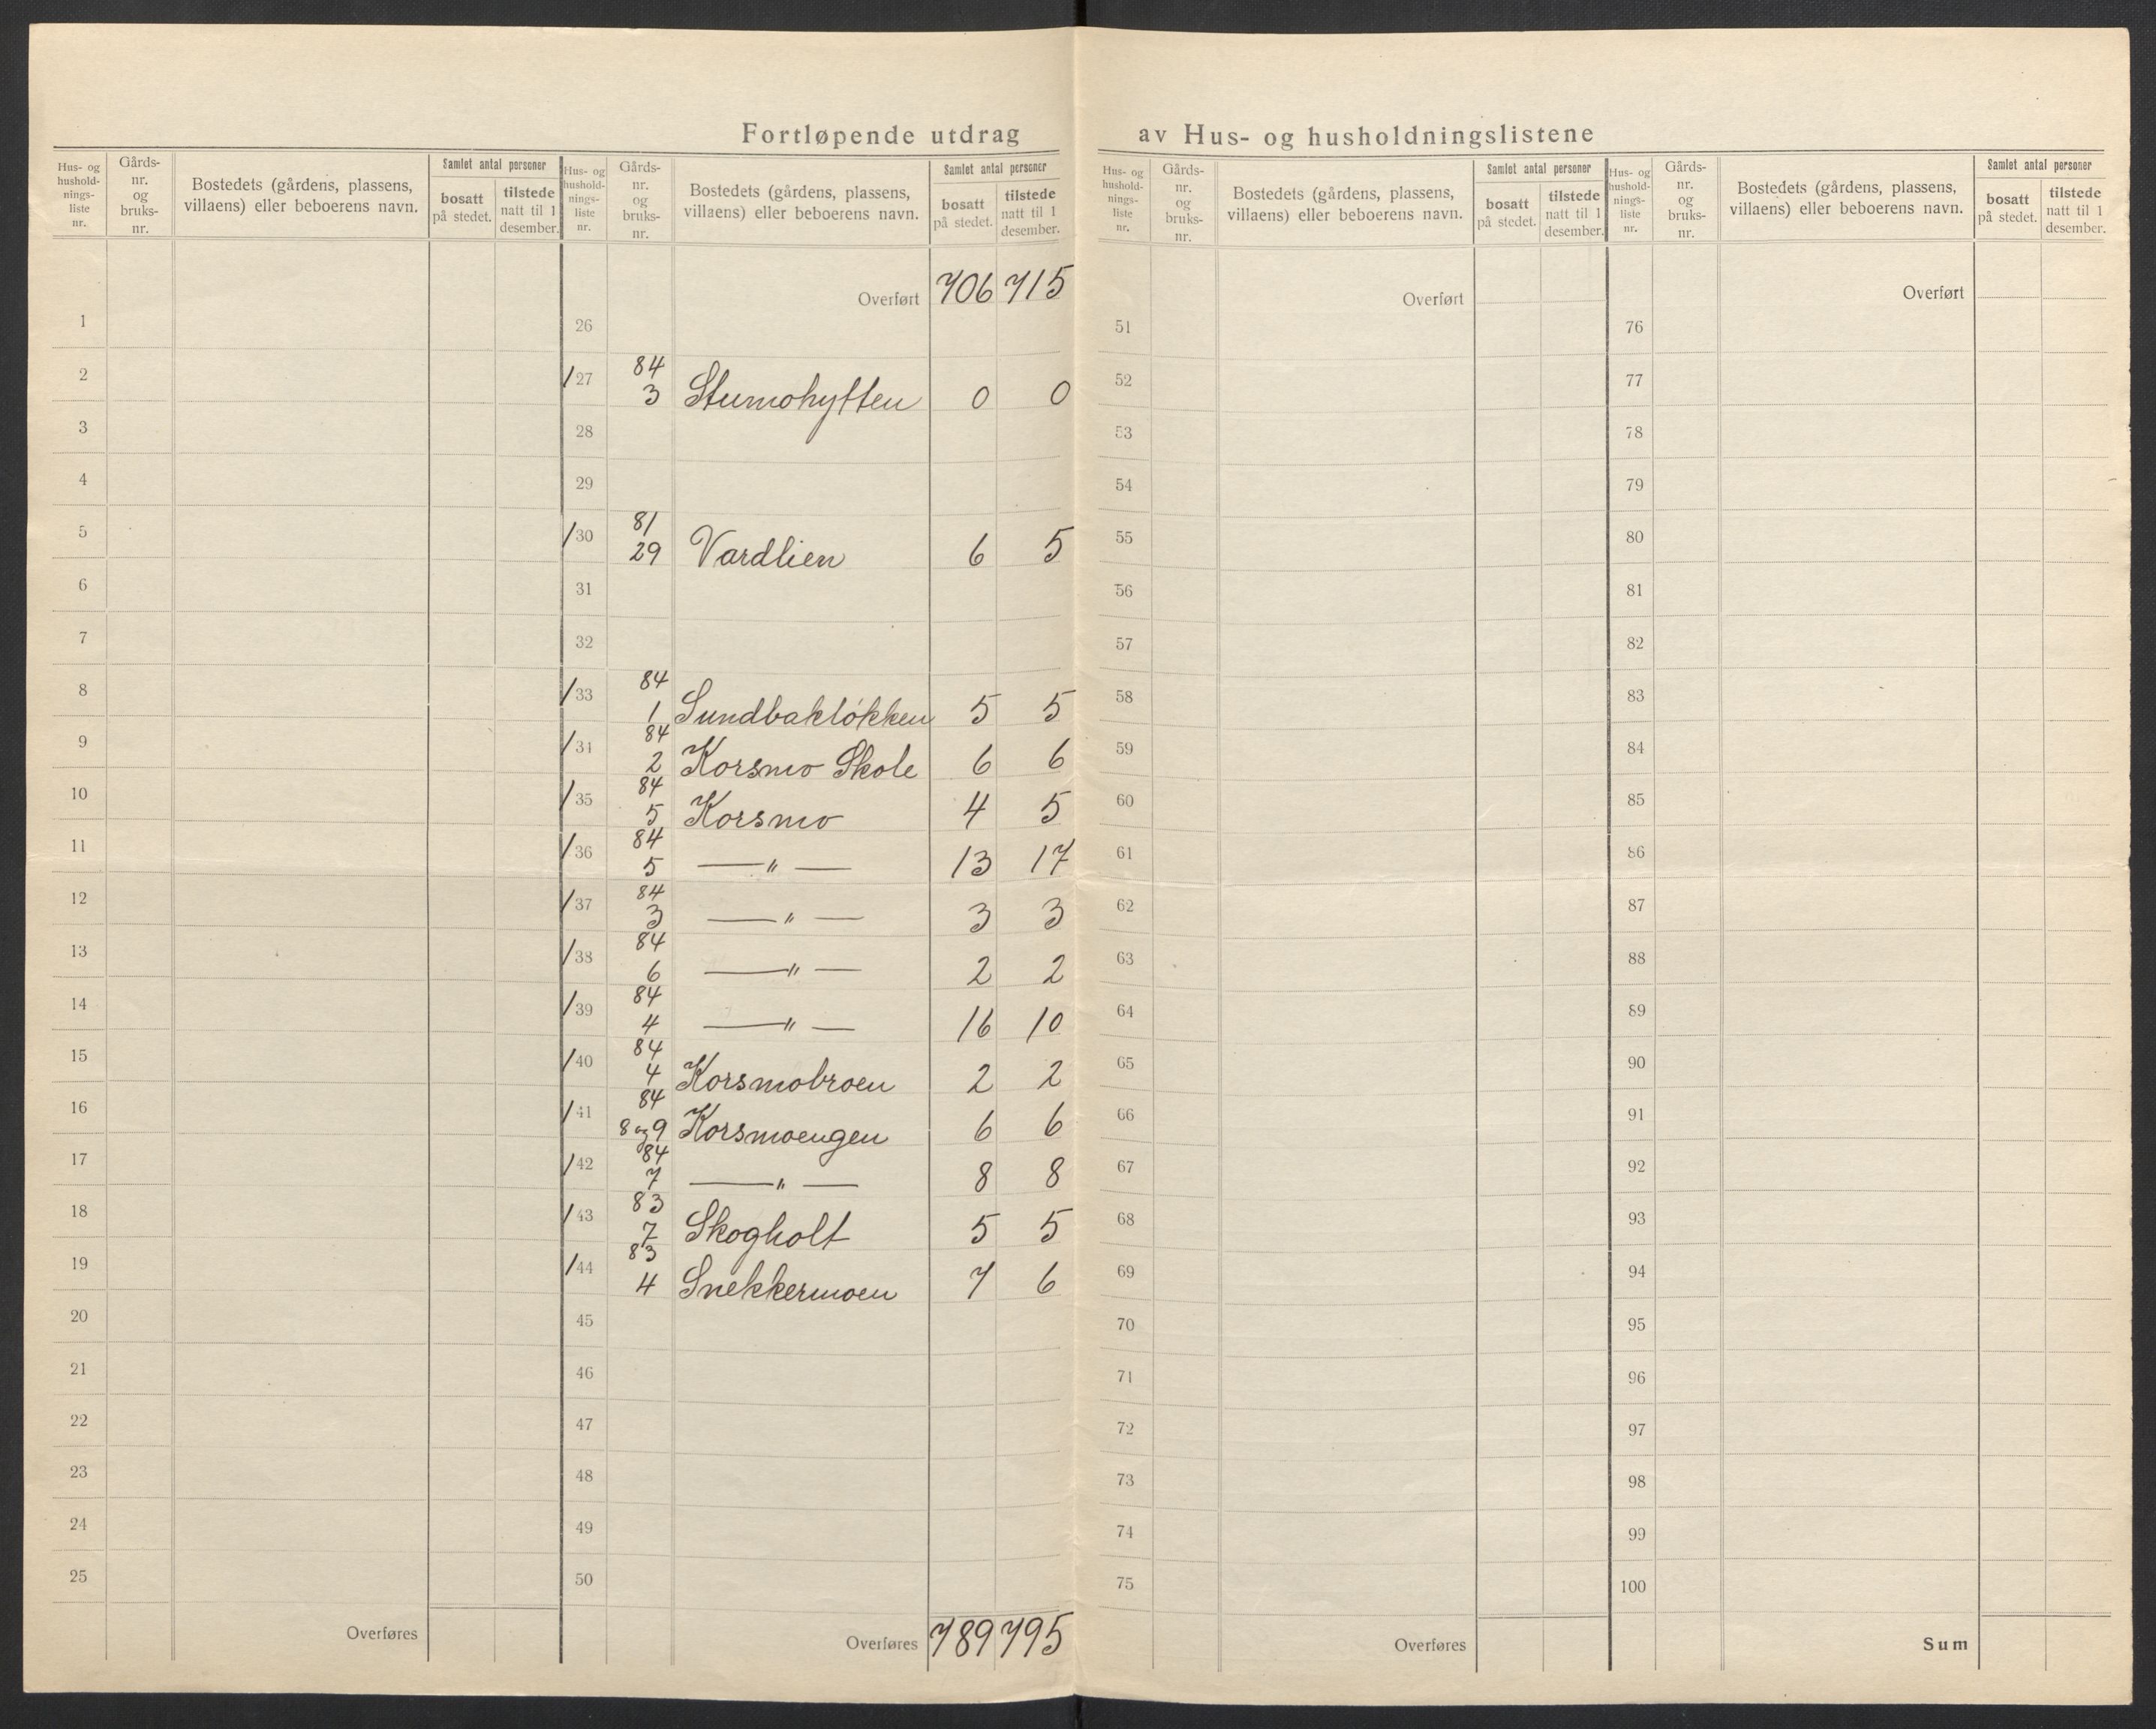 Fortløpende utdrag av Hus- og husholdningslistene
Hus- og hushold- nings- liste nr.
Gårds- nr. og bruks- nr.
Bostedets (gårdens, plassens, villaens) eller beboerens navn.
Samlet antal personer
bosatt på stedet.
tilstede natt til 1 desember.
Hus- og hushold- nings- liste nr.
Gårds- nr. og bruks- nr.
Bostedets (gårdens, plassens, villaens) eller beboerens navn.
Samlet antal personer
bosatt på stedet.
tilstede natt til 1 desember.
Hus- og hushold- nings- liste nr.
Gårds- nr. og bruks- nr.
Bostedets (gårdens, plassens, villaens) eller beboerens navn.
Samlet antal personer
bosatt på stedet.
tilstede natt til 1 desember.
Hus- og hushold- nings- liste nr.
Gårds- nr. og bruks- nr.
Bostedets (gårdens, plassens, villaens) eller beboerens navn.
Samlet antal personer
bosatt på stedet.
tilstede natt til 1 desember.
1
2
3
4
5
6
7
8
9
10
11
12
13
14
15
16
17
18
19
20
21
22
23
24
25
Overføres
Overført 706 715
26
127 84 3 Stumohytten 0 0
28
29
130 81 29 Vardlien 6 5
31
32
133 84 1 Sundbakløkken 5 5
134 84 2 Korsmo Skole 6 6
135 84 5 Korsmo 4 5
136 84 5 —"— 13 17
137 84 3 —"— 3 3
138 84 6 —"— 2 2
139 84 4 —"— 16 10
140 84 4 Korsmobroen 2 2
141 84 8 og 9 Korsmoengen 6 6
142 84 7 —"— 8 8
143 83 7 Skogholt 5 5
144 83 4 Snekkermoen 7 6
45
46
47
48
49
50
Overføres 789 795
Overført
51
52
53
54
55
56
57
58
59
60
61
62
63
64
65
66
67
68
69
70
71
72
73
74
75
Overføres
Overført
76
77
78
79
80
81
82
83
84
85
86
87
88
89
90
91
92
93
94
95
96
97
98
99
100
Sum